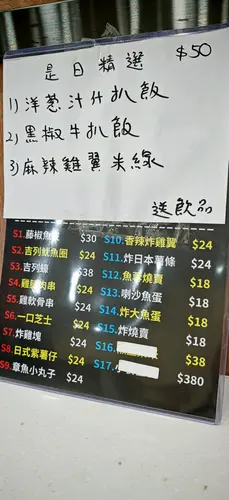 是日精選 $50
1) 洋葱汁什扒飯
2) 黑椒牛扒飯
3) 麻辣雞翼米線
送飲品
S1.藤椒魚 $30
S2.吉列魷魚圈 $24
S3.吉列蠔 $38
S4.雞肉串 $24
S5.雞軟骨串 $24
S6.一口芝士 $24
S7.炸雞塊 $24
S8.日式紫薯仔 $24
S9.章魚小丸子 $24
S10.香辣炸雞翼 $24
S11.炸日本薯條 $24
S12.魚蓉燒賣 $18
S13.喇沙魚蛋 $18
S14.炸大魚蛋 $18
S15.炸燒賣 $18
S16. $38
S17. $380